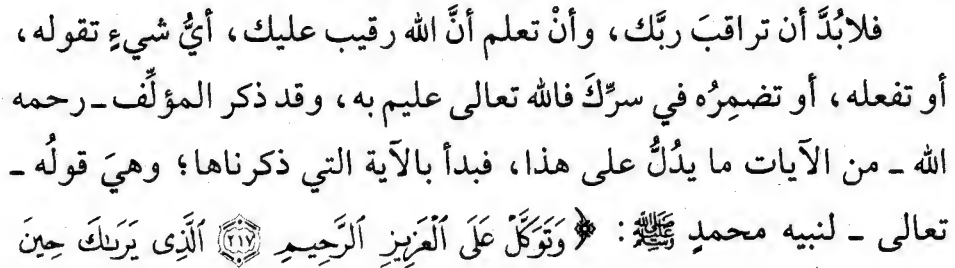 فلابُدَّ أن تراقبَ ربَّك، وأنْ تعلم أنَّ الله رقيب عليك، أيُّ شيءٍ تقوله،
أو تفعله، أو تضمِرُه في سرِّكَ فالله تعالى عليم به، وقد ذكر المؤلِّف ـ رحمه
الله ـ من الآيات ما يدُلُّ على هذا، فبدأ بالآية التي ذكرناها؛ وهيَ قولُه ـ
تعالى ـ لنبيه محمدٍ ﷺ: ﴿وَتَوَكَّلْ عَلَى ٱلْعَزِيزِ ٱلرَّحِيمِ ۝٢١٧ ٱلَّذِى يَرَىٰكَ حِينَ